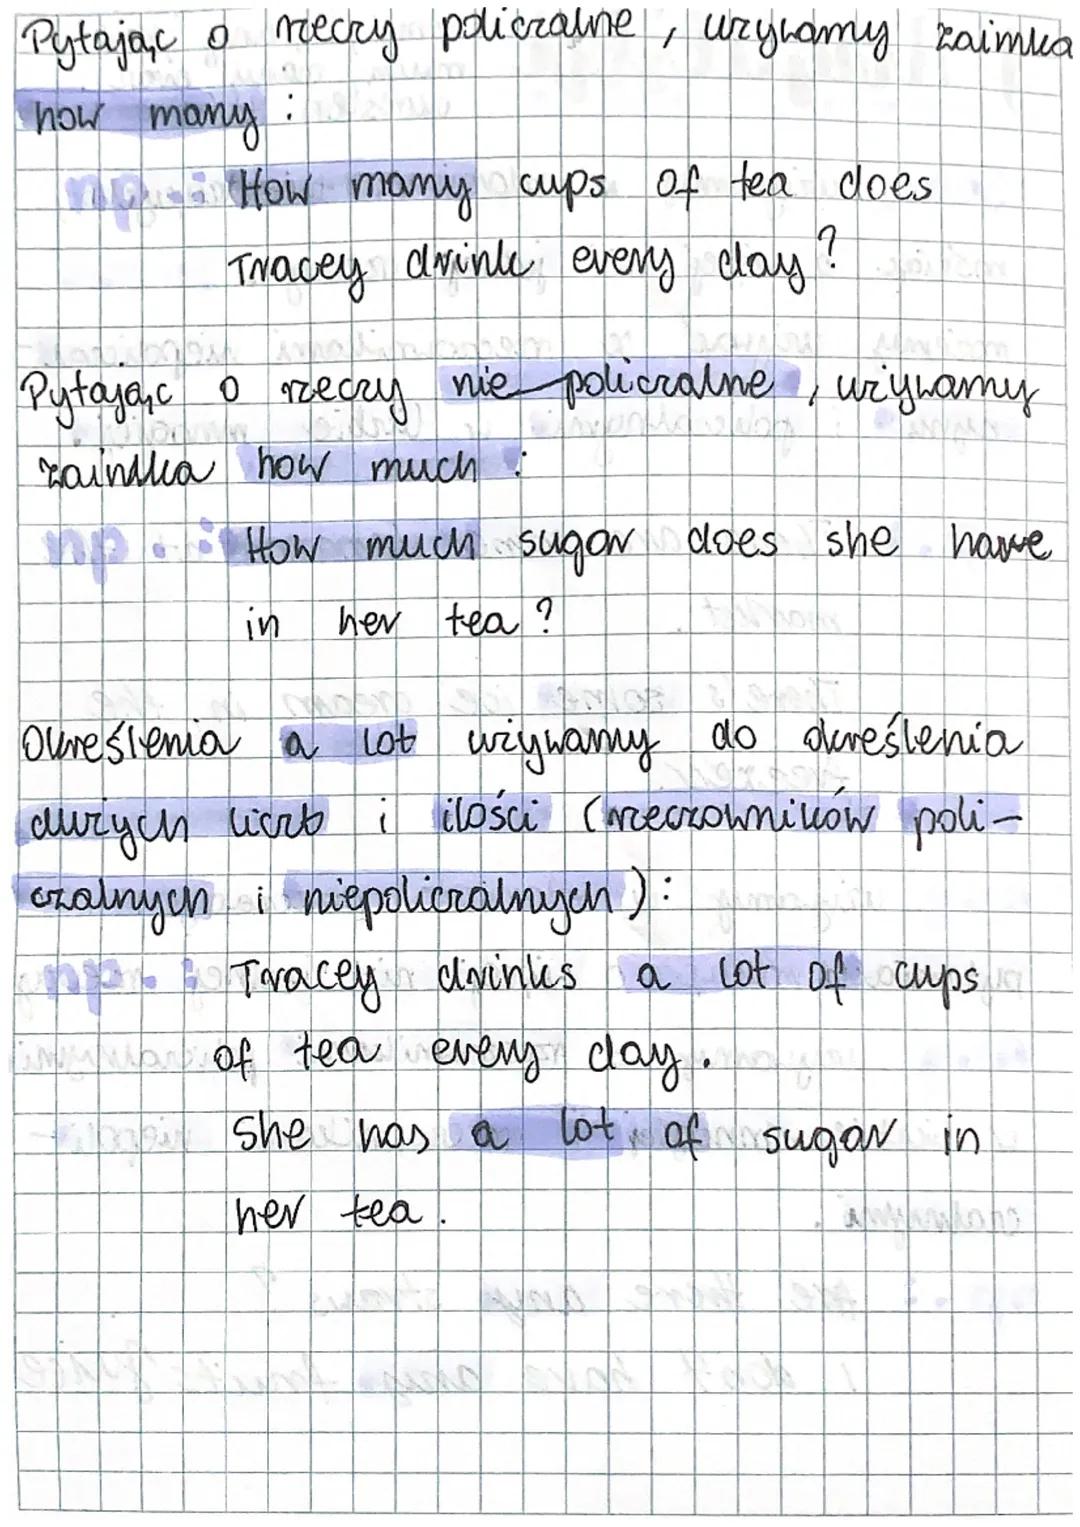 Pytając o rzeczy policzalne, używamy zaimka
how many:
How many cups of tea does
Tracey drink every day?
Pytając o rzeczy nie policzalne, używamy
zaimka how much:
How much sugar does she have
in her tea?
Określenia a lot używamy do określenia
dużych liczb i ilości (rzeczowników poli-
czalnych i niepoliczalnych):
Tracey drinks a lot of cups
of tea every day.
She has a lot of sugar in
her tea.